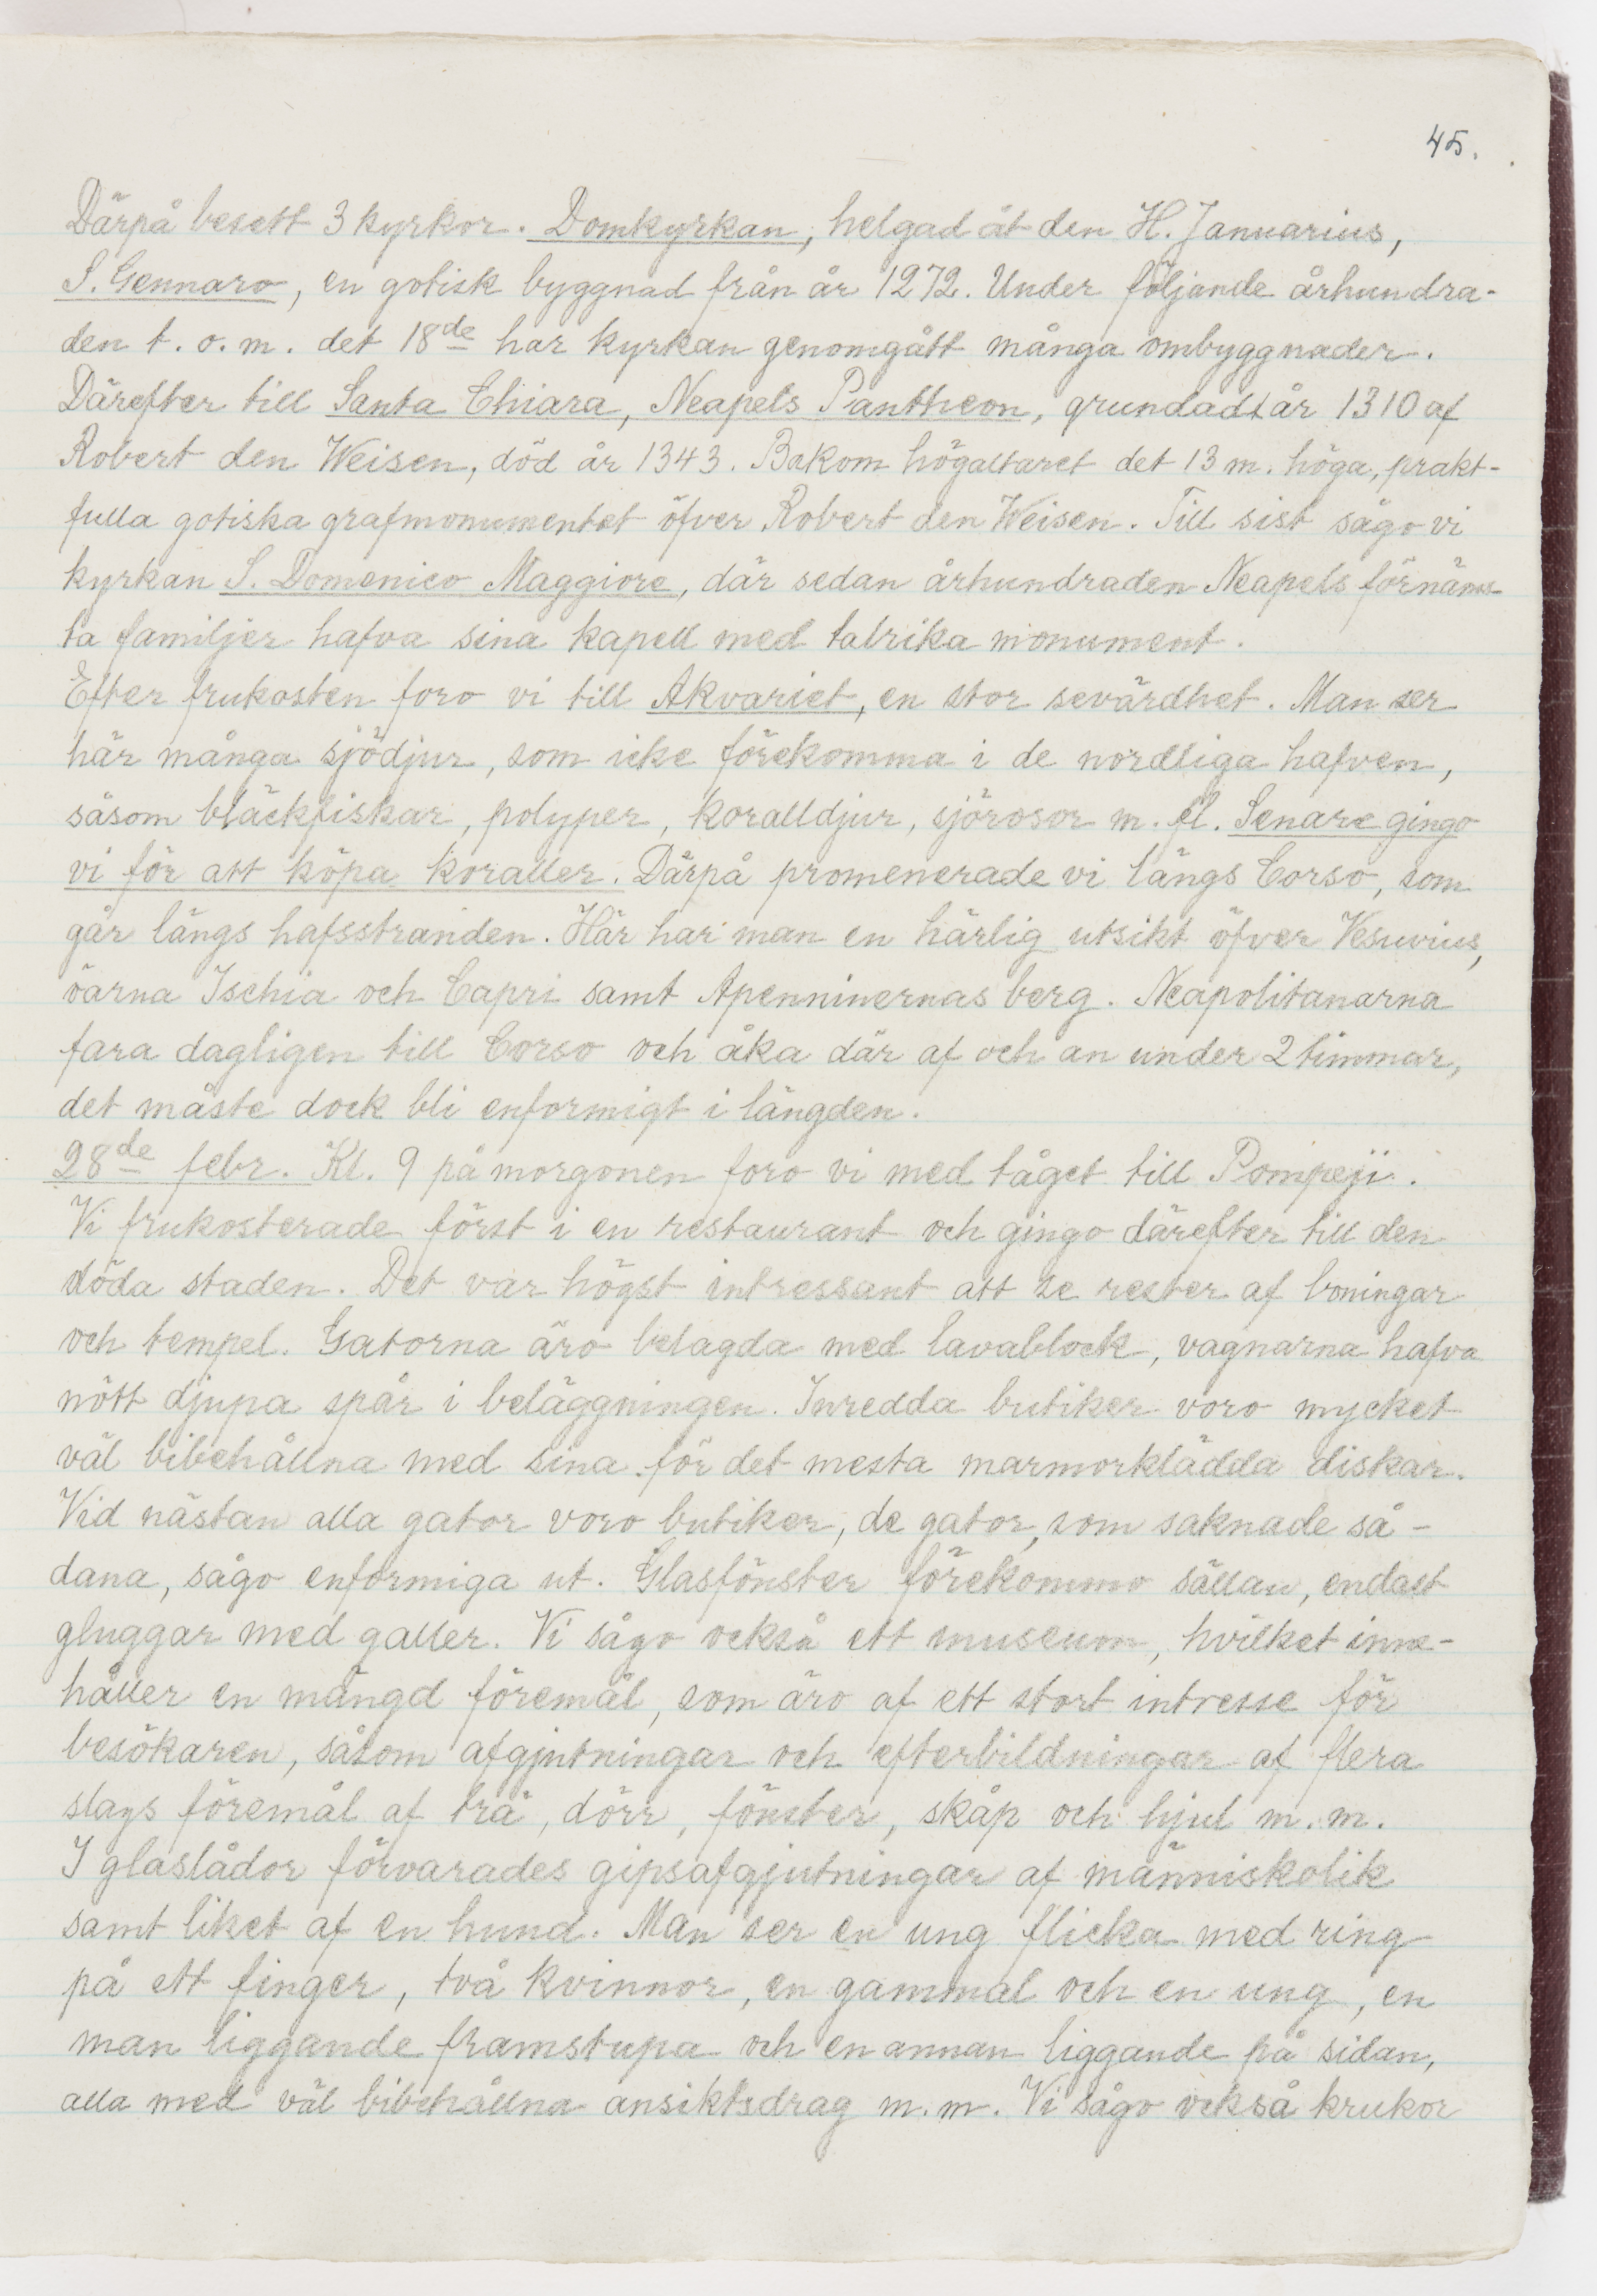 45.
Därpå besett 3 kyrkor. Domkyrkan, helgad åt den H. Januarius,
S. Gennaro, en gotisk byggnad från år 1272. Under följande århundra-
den t. o. m. det 18de har kyrkan genomgått många ombyggnader.
Därefter till Santa Chiara, Neapels Pantheon, grundadt år 1310 af
Robert den Weisen, död år 1343. Bakom högaltaret det 13 m. höga, prakt-
fulla gotiska grafmonumentet öfver Robert den Weisen. Till sist sågo vi
kyrkan S. Domenico Maggiore, där sedan århundraden Neapels förnäms-
ta familjer hafva sina kapell med talrika monument.
Efter frukosten foro vi till Akvariet, en stor sevärdhet. Man ser
här många sjödjur, som icke förekomma i de nordliga hafven,
såsom bläckfiskar, polyper, koralldjur, sjörosor m. fl. Senare gingo
vi för att köpa koraller. Därpå promenerade vi längs Corso, som
går längs hafsstranden. Här har man en härlig utsikt öfver Vesuvius,
öarna Ischia och Capri samt Apenninernas berg. Neapolitanarna
fara dagligen till Corso och åka där af och an under 2 timmar,
det måste dock bli enformigt i längden.
28de febr. Kl. 9 på morgonen foro vi med tåget till Pompeji.
Vi frukosterade först i en restaurant och gingo därefter till den
döda staden. Det var högst intressant att se rester af boningar
och tempel. Gatorna äro belagda med lavablock, vagnarna hafva
nött djupa spår i beläggningen. Inredda butiker voro mycket
väl bibehållna med sina för det mesta marmorklädda diskar.
Vid nästan alla gator voro butiker, de gator, som saknade så-
dana, sågo enformiga ut. Glasfönster förekommo sällan, endast
gluggar med galler. Vi sågo också ett museum, hvilket inne-
håller en mängd föremål, som äro af ett stort intresse för
besökaren, såsom afgjutningar och efterbildningar af flera
slags föremål af trä, dörr, fönster, skåp och hjul m. m.
I glaslådor förvarades gipsafgjutningar af människolik
samt liket af en hund. Man ser en ung flicka med ring
på ett finger, två kvinnor, en gammal och en ung, en
man liggande framstupa och en annan liggande på sidan,
alla med väl bibehållna ansiktsdrag m. m. Vi sågo också krukor